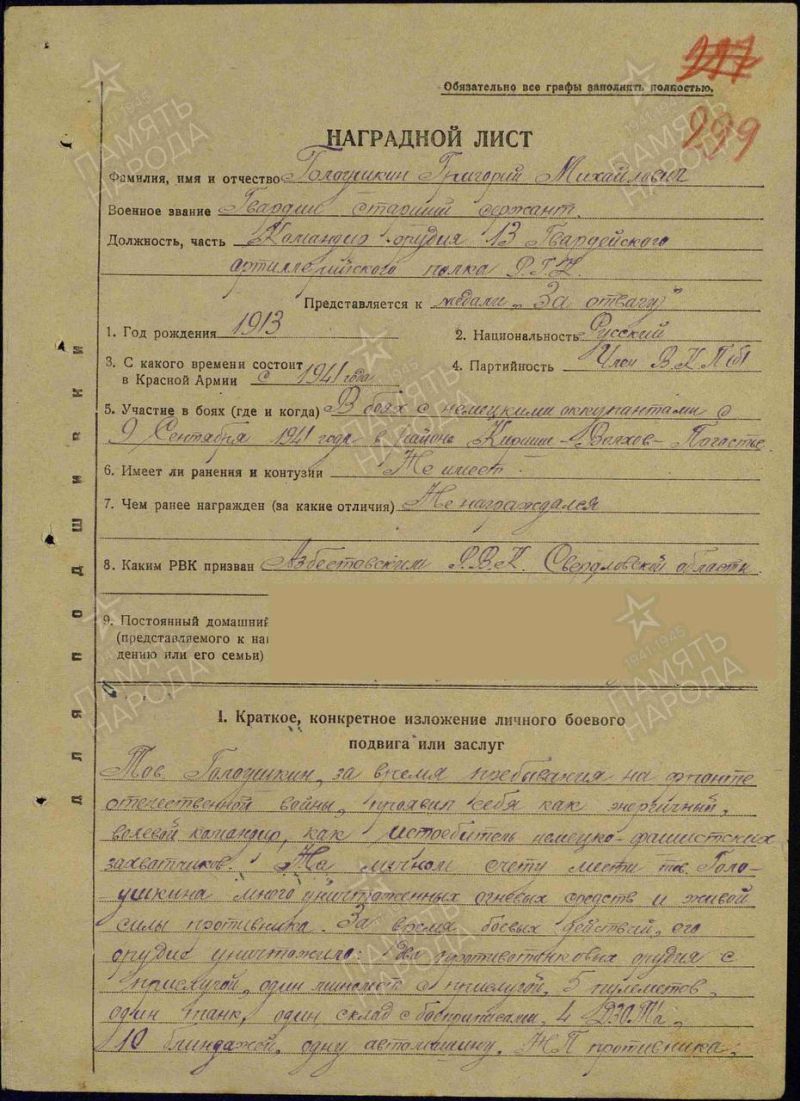 297
Обязательно все графы заполнять полностью.
299
НАГРАДНОЙ ЛИСТ
Фамилия, имя и отчество Голоушкин Григорий Михайлович
Военное звание Гвардии старший сержант.
Должность, часть Командир орудия 13 Гвардейского
артиллерийского полка Р.Г.К.
Представляется к медали „За отвагу"
1. Год рождения 1913 2. Национальность Русский
3. С какого времени состоит
в Красной Армии с 1941 года 4. Партийность Член В.К.П(б)
5. Участие в боях (где и когда) В боях с немецкими оккупантами с
9 Сентября 1941 года в районе Кириши – Волхов – Погостье.
6. Имеет ли ранения и контузии Не имеет.
7. Чем ранее награжден (за какие отличия) Не награждался
8. Каким РВК призван Азбестовским Р.В.К. Свердловской области.
9. Постоянный домашний
(представляемого к на
дению или его семьи)
Для подшивки
1. Краткое, конкретное изложение личного боевого
подвига или заслуг
Тов. Голоушкин, за время пребывания на фронте
отечественной войны, проявил себя как энергичный,
волевой командир, как истребитель немецко-фашистских
захватчиков. На личном счету мести тов. Голо-
ушкина много уничтоженных огневых средств и живой
силы противника. За время боевых действий, его
орудие уничтожило: два противотанковых орудия с
прислугой, один миномет с прислугой, 5 пулеметов,
один танк, один склад с боеприпасами, 4 ДЗОТа,
10 блиндажей, одну автомашину, НП противника,
1941-1945
ПАМЯТЬ НАРОДА